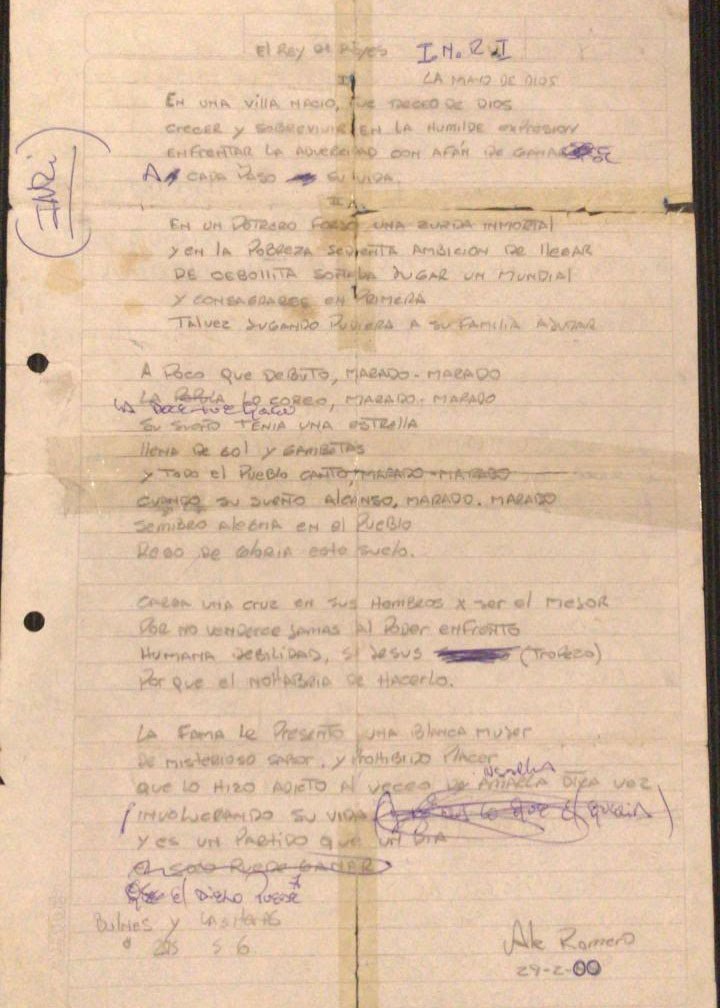 El Rey de Reyes I.N.R.I
I
LA MANO DE DIOS
EN UNA VILLA NACIO, FUE DECEO DE DIOS
CRECER Y SOBREVIVIR EN LA HUMILDE EXPRESION
ENFRENTAR LA ADVERCIDAD CON AFÁN DE
A CADA PASO SU VIDA.
INRI
II
EN UN POTRERO FORJO UNA ZURDA INMORTAL
Y EN LA POBREZA SEDIENTA AMBICION DE LLEGAR
DE CEBOLLITA SOÑABA JUGAR UN MUNDIAL
Y CONSAGRARCE EN PRIMERA
TALVEZ JUGANDO PUDIERA A SU FAMILIA AYUDAR
A POCO QUE DEBUTO, MARADO-MARADO
LA LO COREO, MARADO-MARADO
LA DOCE FUE QUIEN
SU SUEÑO TENIA UNA ESTRELLA
LLENA DE GOL Y GAMBETAS
Y TODO EL PUEBLO CANTO MARADO-MARADO
CUANDO SU SUEÑO ALCANSO, MARADO. MARADO
SEMBRO ALEGRIA EN EL PUEBLO
REGO DE GLORIA ESTE SUELO.
CARGA UNA CRUZ EN SUS HOMBROS X SER EL MEJOR
POR NO VENDERCE JAMAS AL PODER ENFRENTO
HUMANA DEBILIDAD, SI JESUS (TROPEZO)
POR QUE EL NO HABRIA DE HACERLO.
LA FAMA LE PRESENTO UNA BLANCA MUJER
DE MISTERIOSO SABOR, Y PROHIBIDO PLACER
QUE LO HIZO ADICTO AL DECEO DE USARLA OTRA VEZ
INVOLUCRANDO SU VIDA
Y ES UN PARTIDO QUE UN DIA
EL SOLO PUEDE GANAR
el Diego Puede
BULNES Y LAS HERAS
Ale Romero
29-2-00